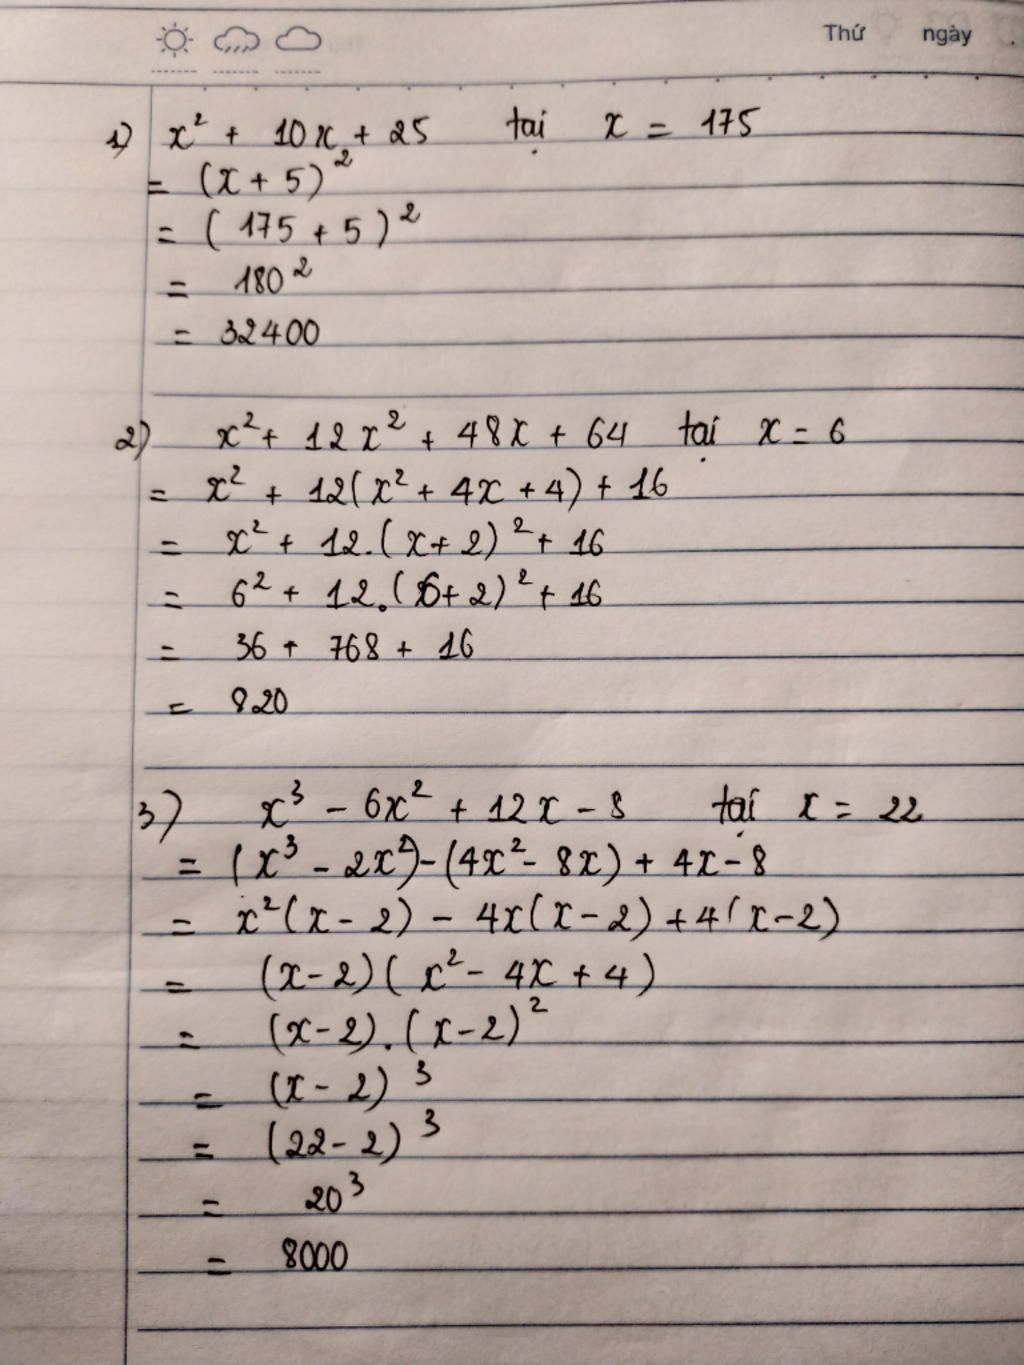 Thứ ngày
1) x² + 10x + 25 tại x = 175
= (x + 5)²
= (175 + 5)²
= 180²
= 32400
2) x² + 12x² + 48x + 64 tại x = 6
= x² + 12(x² + 4x + 4) + 16
= x² + 12.(x + 2)² + 16
= 6² + 12.(6 + 2)² + 16
= 36 + 768 + 16
= 820
3) x³ - 6x² + 12x - 8 tại x = 22
= (x³ - 2x²) - (4x² - 8x) + 4x - 8
= x²(x - 2) - 4x(x - 2) + 4(x - 2)
= (x - 2)(x² - 4x + 4)
= (x - 2).(x - 2)²
= (x - 2)³
= (22 - 2)³
= 20³
= 8000